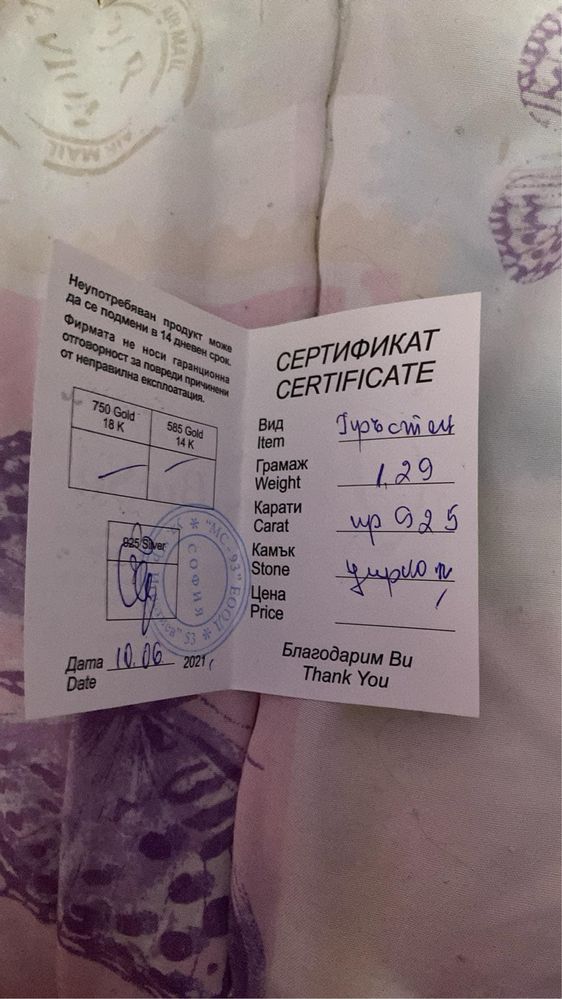 AIR MAIL
AIR MAIL
Неупотребяван продукт може
да се подмени в 14 дневен срок.
Фирмата не носи гаранционна
отговорност за повреди причинени
от неправилна експлоатация.
750 Gold
18 K
585 Gold
14 K
925/Silver
"МС-93" ЕООД
СОФИЯ
53
Дата 10.06 2021г
Date
СЕРТИФИКАТ
CERTIFICATE
Вид
Item
Пръстен
Грамаж
Weight
1,29
Карати
Carat
пр 925
Камък
Stone
циркон
Цена
Price
Благодарим Ви
Thank You